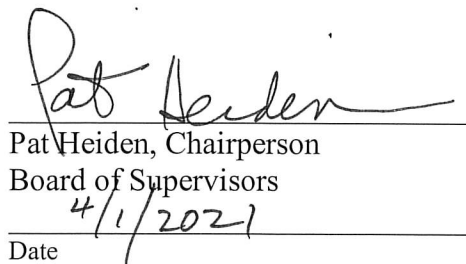 Pat Heiden
Pat Heiden, Chairperson
Board of Supervisors
4/1/2021
Date